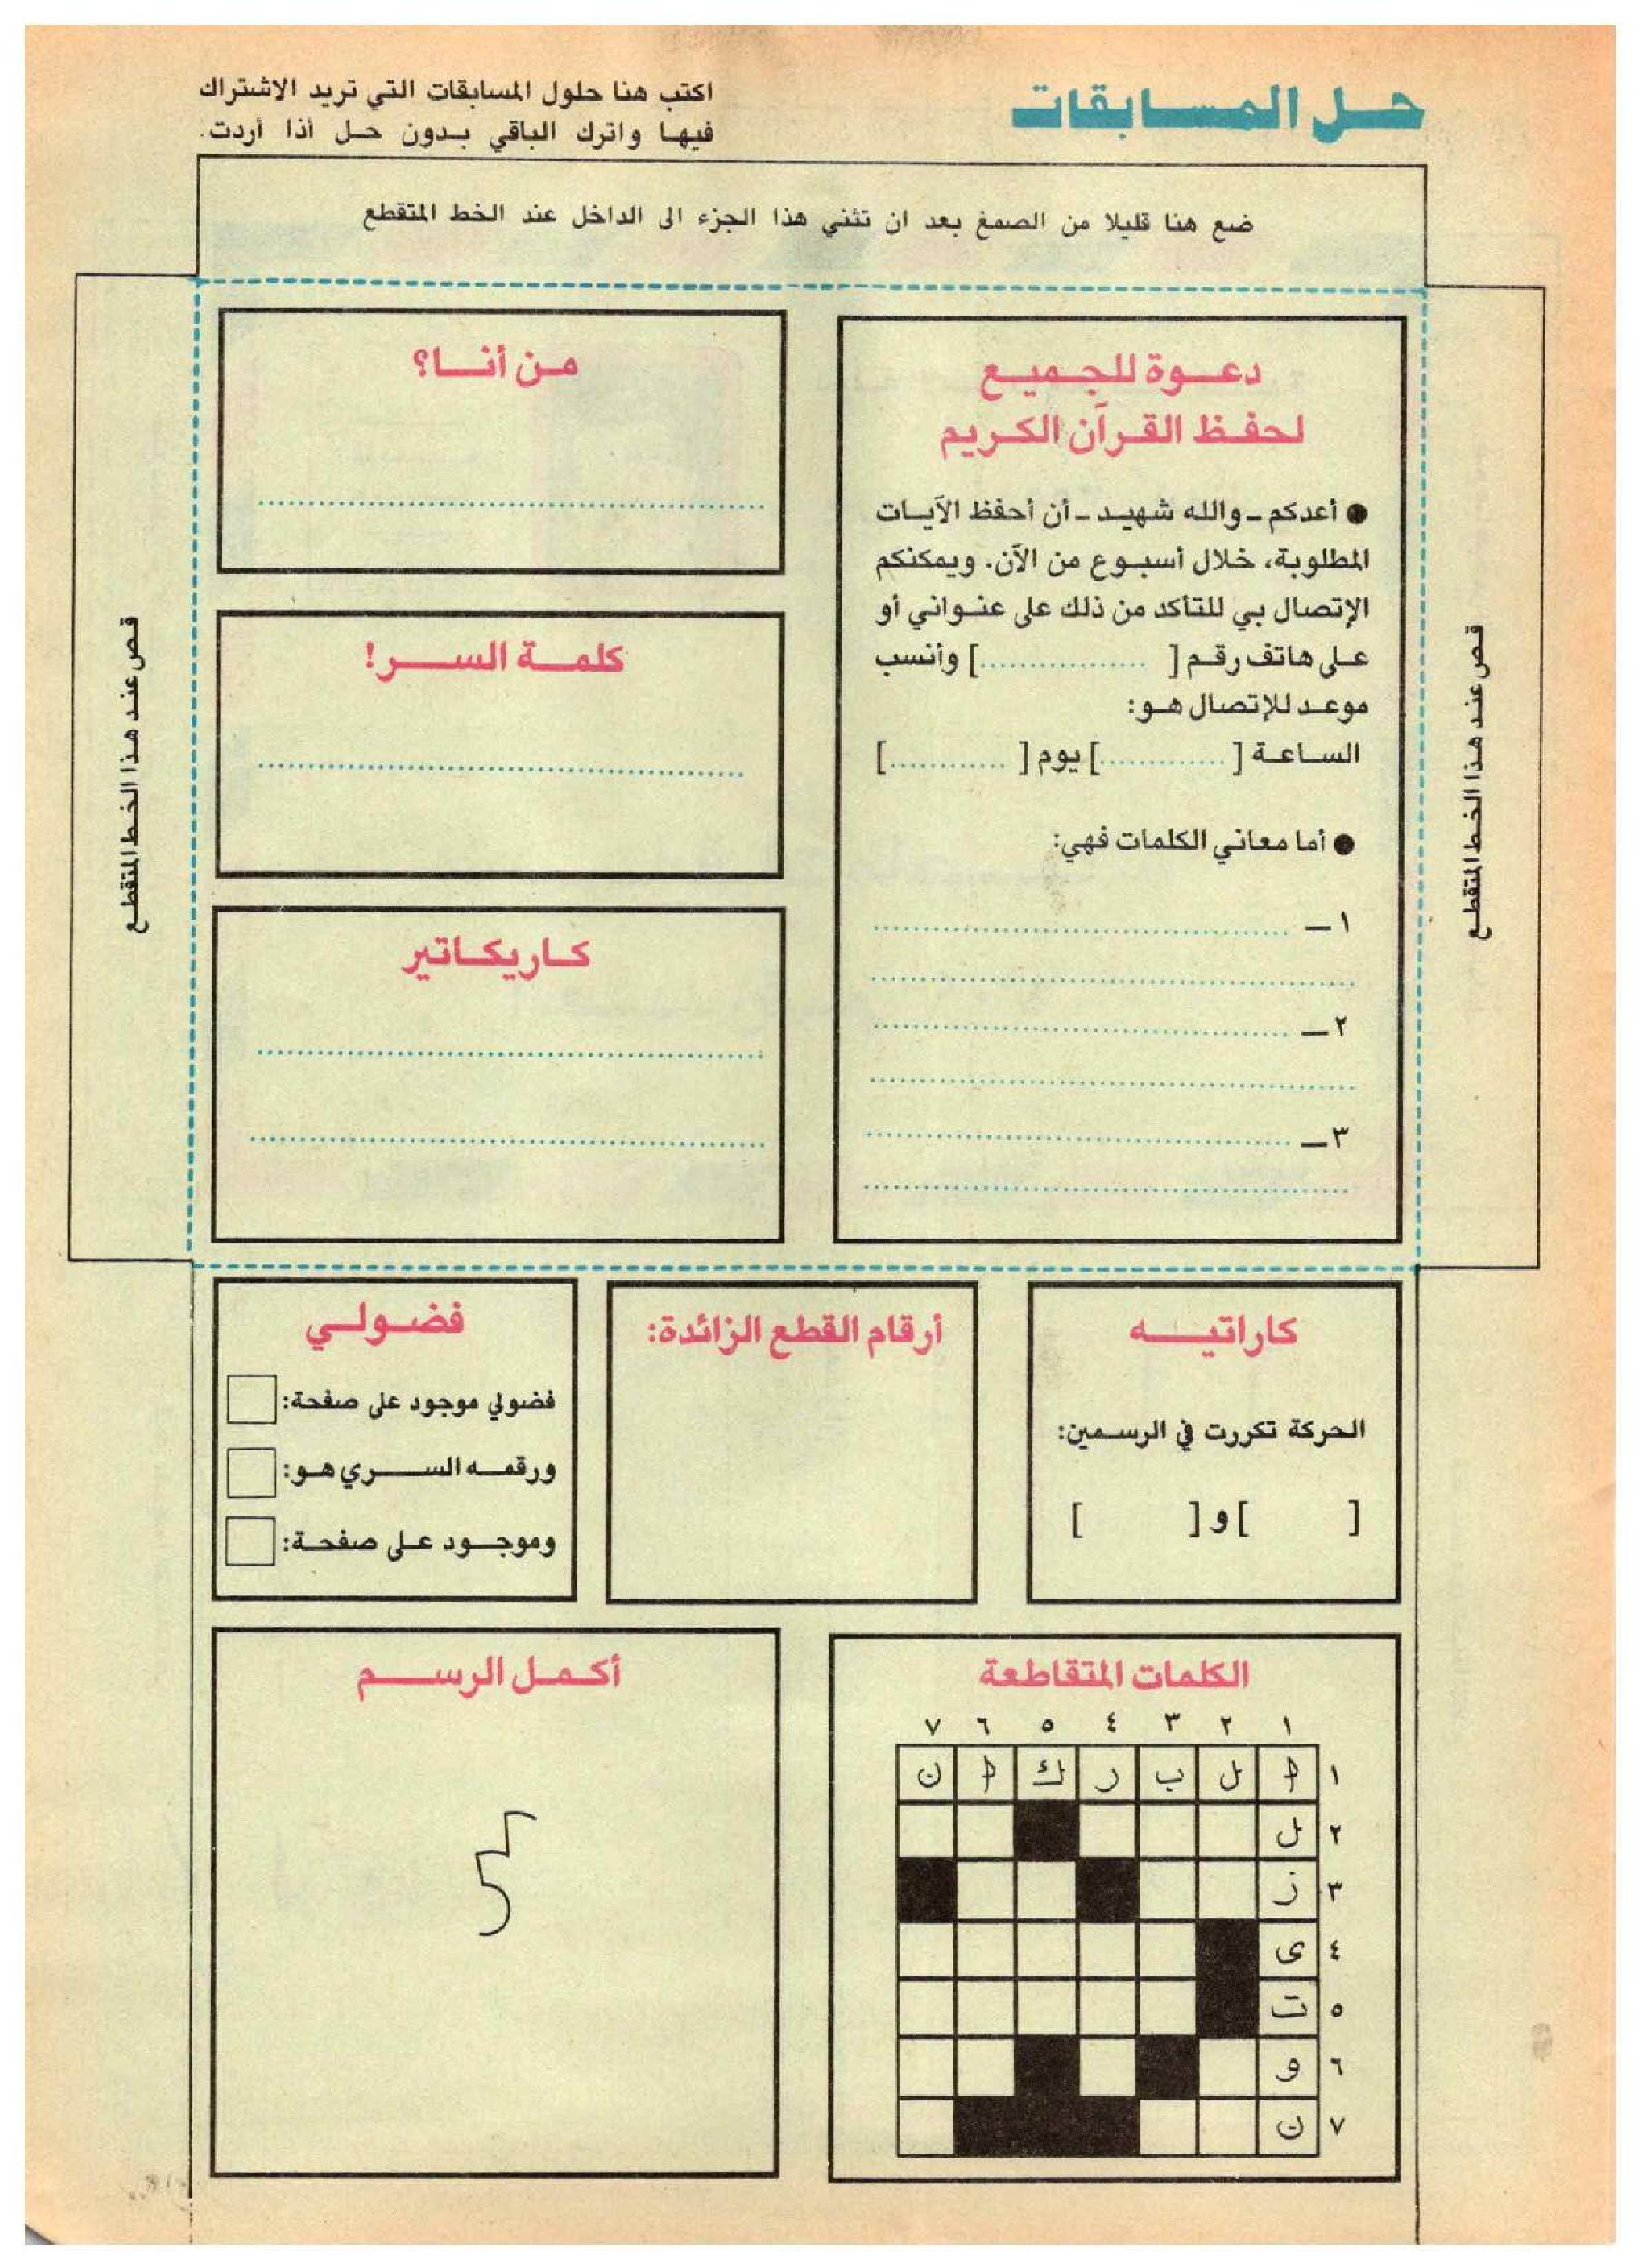 حل المسابقات
اكتب هنا حلول المسابقات التي تريد الاشتراك
فيها واترك الباقي بدون حل أذا أردت.
ضع هنا قليلا من الصمغ بعد ان تثني هذا الجزء الى الداخل عند الخط المتقطع
قص عند هذا الخط المتقطع
دعوة للجميع
لحفظ القرآن الكريم
● أعدكم - والله شهيد - أن أحفظ الآيات
المطلوبة، خلال أسبوع من الآن. ويمكنكم
الإتصال بي للتأكد من ذلك على عنواني أو
على هاتف رقم [ .................] وأنسب
موعد للإتصال هو:
الساعة [ .............] يوم [ ............]
● أما معاني الكلمات فهي:
١ـ
٢ـ
٣ـ
من أنا؟
كلمة السر!
كاريكاتير
قص عند هذا الخط المتقطع
كاراتيه
الحركة تكررت في الرسمين:
[ ] و [ ]
أرقام القطع الزائدة:
فضولي
فضولي موجود على صفحة:
ورقمه السري هو:
وموجود على صفحة:
الكلمات المتقاطعة
١ ٢ ٣ ٤ ٥ ٦ ٧
١ ا ل ب ر ك ا ن
٢ ل
٣ ز
٤ ى
٥ ت
٦ و
٧ ن
أكمل الرسم